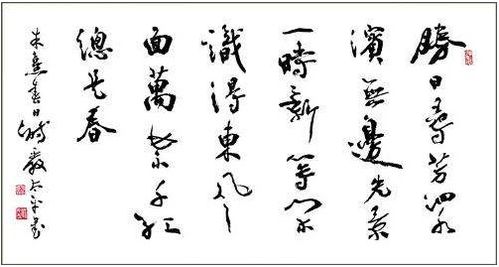 勝日尋芳泗水
濱無邊光景
一時新等閑
識得東風
面萬紫千紅
總是春
朱熹春日詩嚴太平书